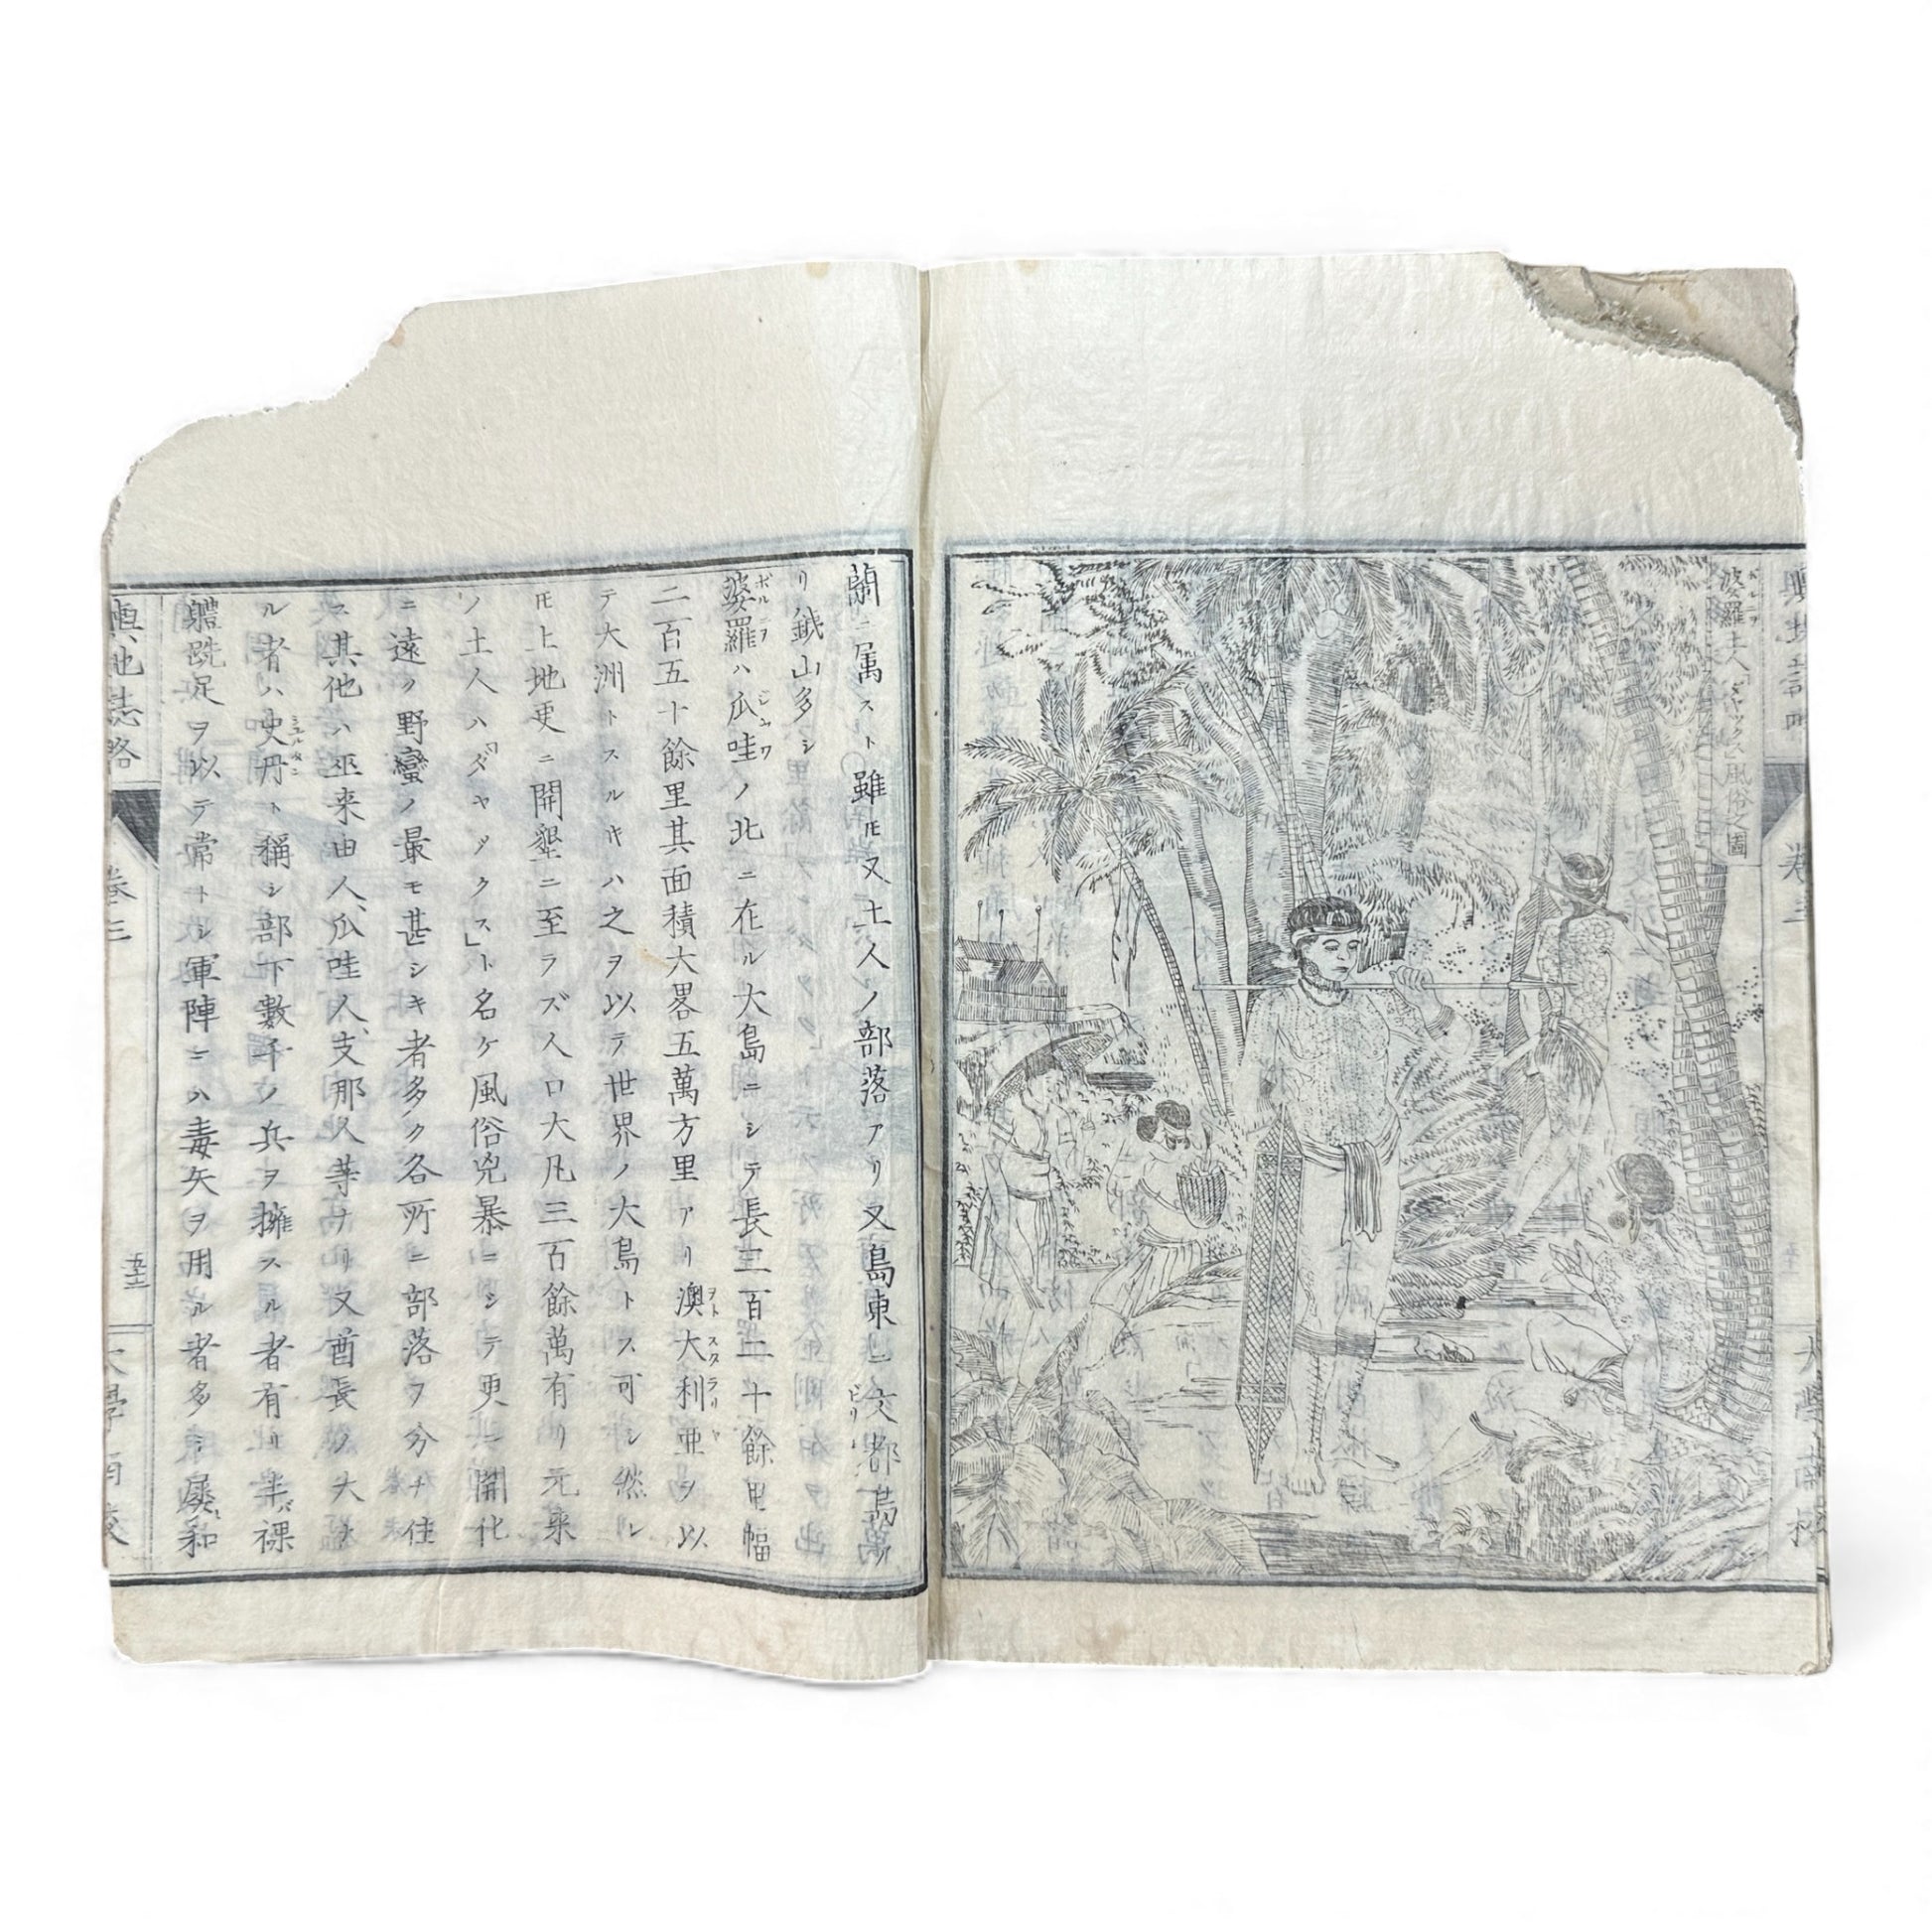 婆羅土人「ダヤックス」風俗之圖
ボルニヲ
輿地誌略
卷三
大學南校
蘭ニ属スト雖𪜈又土人ノ部落アリ又島東ニ文郡島ア
リ鉄山多シ
婆羅ハ瓜哇ノ北ニ在ル大島ニシテ長三百二十餘里幅
ボルニヲ
ジャワ
二百五十餘里其面積大畧五萬方里アリ澳大利亜ヲ以
ヲトスタラリヤ
テ大洲トスルキハ之ヲ以テ世界ノ大島トス可シ然レ
𪜈土地更ニ開墾ニ至ラズ人口大凡三百餘萬有リ元来
ノ土人ハ「ダヤックス」ト名ケ風俗兇暴ニシテ更ニ開化
ニ遠ク野蠻ノ最モ甚シキ者多ク各所ニ部落ヲ分チ住
ス其他ハ巫来由人、瓜哇人、支那人等ナリ又酋長ノ大ナ
ル者ハ史丹ト稱シ部下數千ノ兵ヲ擁スル者有リ半裸
シュルタン
軆跣足ヲ以テ常トシ軍陣ニハ毒矢ヲ用ル者多シ屡和
輿地誌略
卷三
五十三
大學南校